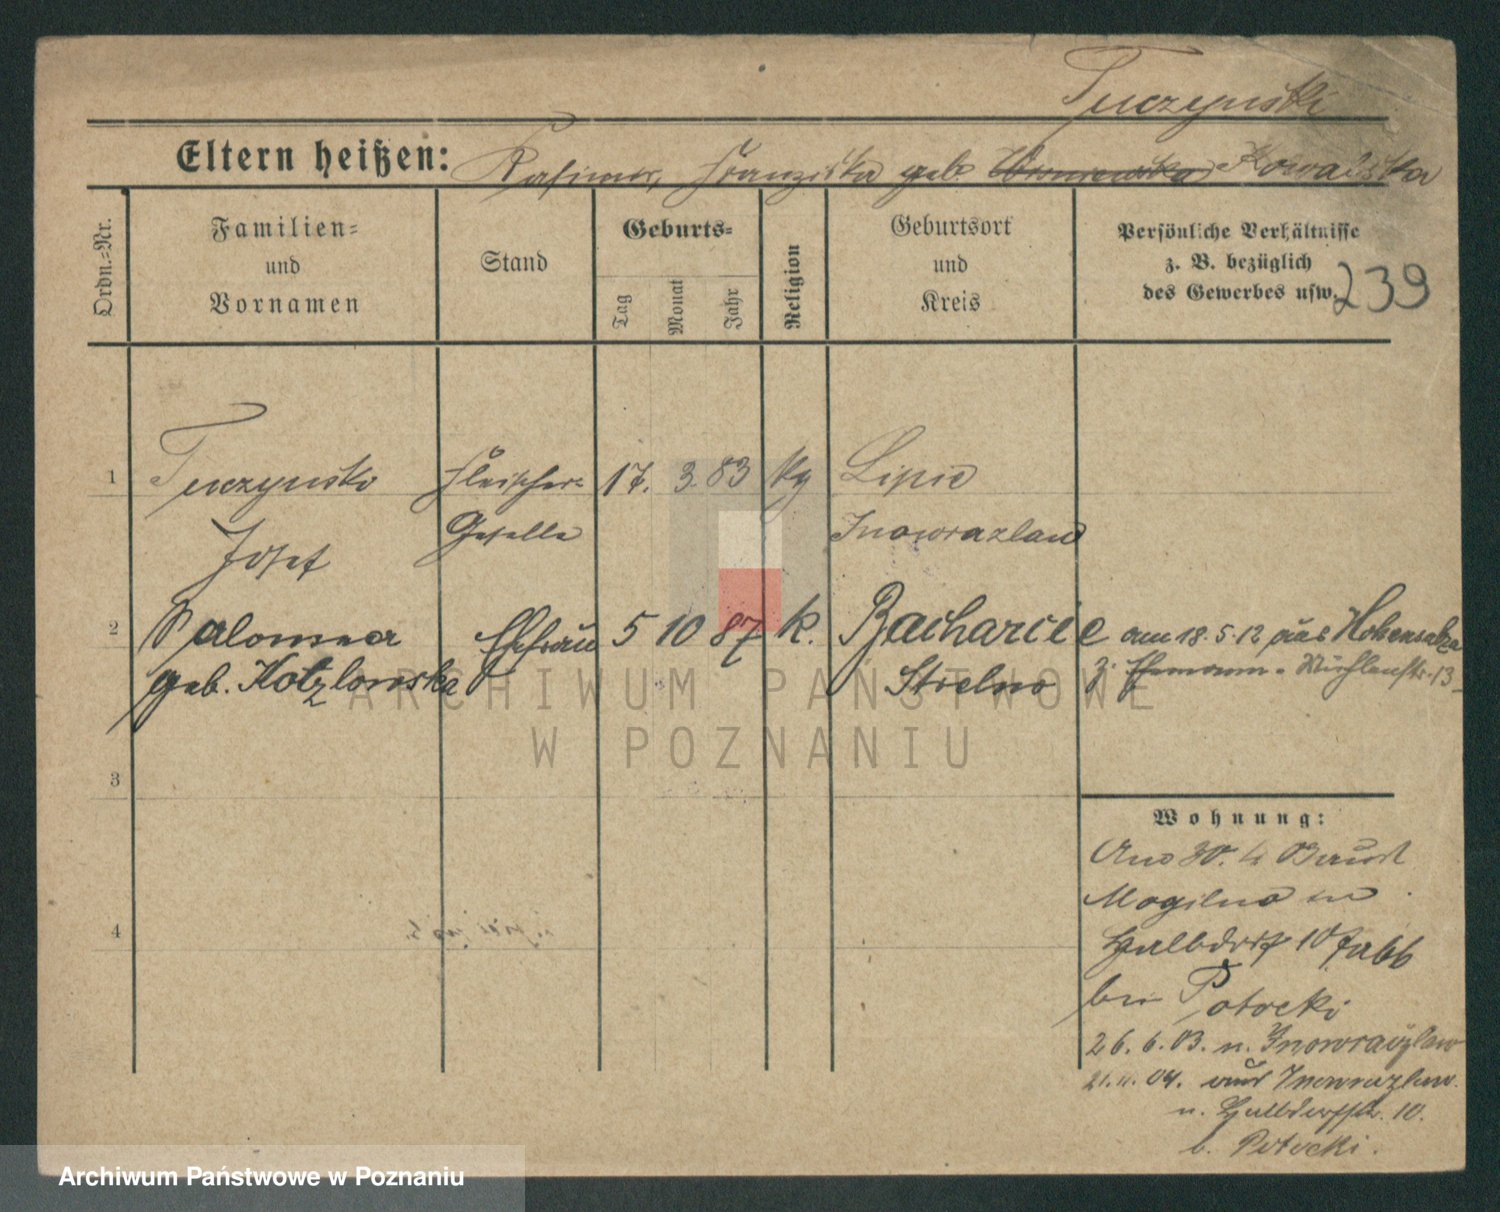 Tuczynski
Eltern heißen: Kasimir, Franziska geb. Kowalska
239
Ordn.=Nr.
Familien=
und
Vornamen
Stand
Geburts=
Tag
Monat
Jahr
Religion
Geburtsort
und
Kreis
Persönliche Verhältnisse
z. B. bezüglich
des Gewerbes usw.
1 Tuczynski Fleischer= 17. 3. 83 kg Lipie
Geselle Inowrazlaw
Josef
2 Salomea Ehefrau 5 10 87 k. Bacharcie am 18.5.12 aus Hohensalza
geb. Kotzlowska Strelno z. Ehemann - 13
3
4
Wohnung:
30. 4 03 aus
Mogilno in
Halbdorf 10
bei Potocki
26. 6. 03. n. Inowrazlaw
21. 11. 04. aus Inowrazlaw.
n. Halbdorfstr. 10.
b. Potocki.
ARCHIWUM PAŃSTWOWE
W POZNANIU
Archiwum Państwowe w Poznaniu